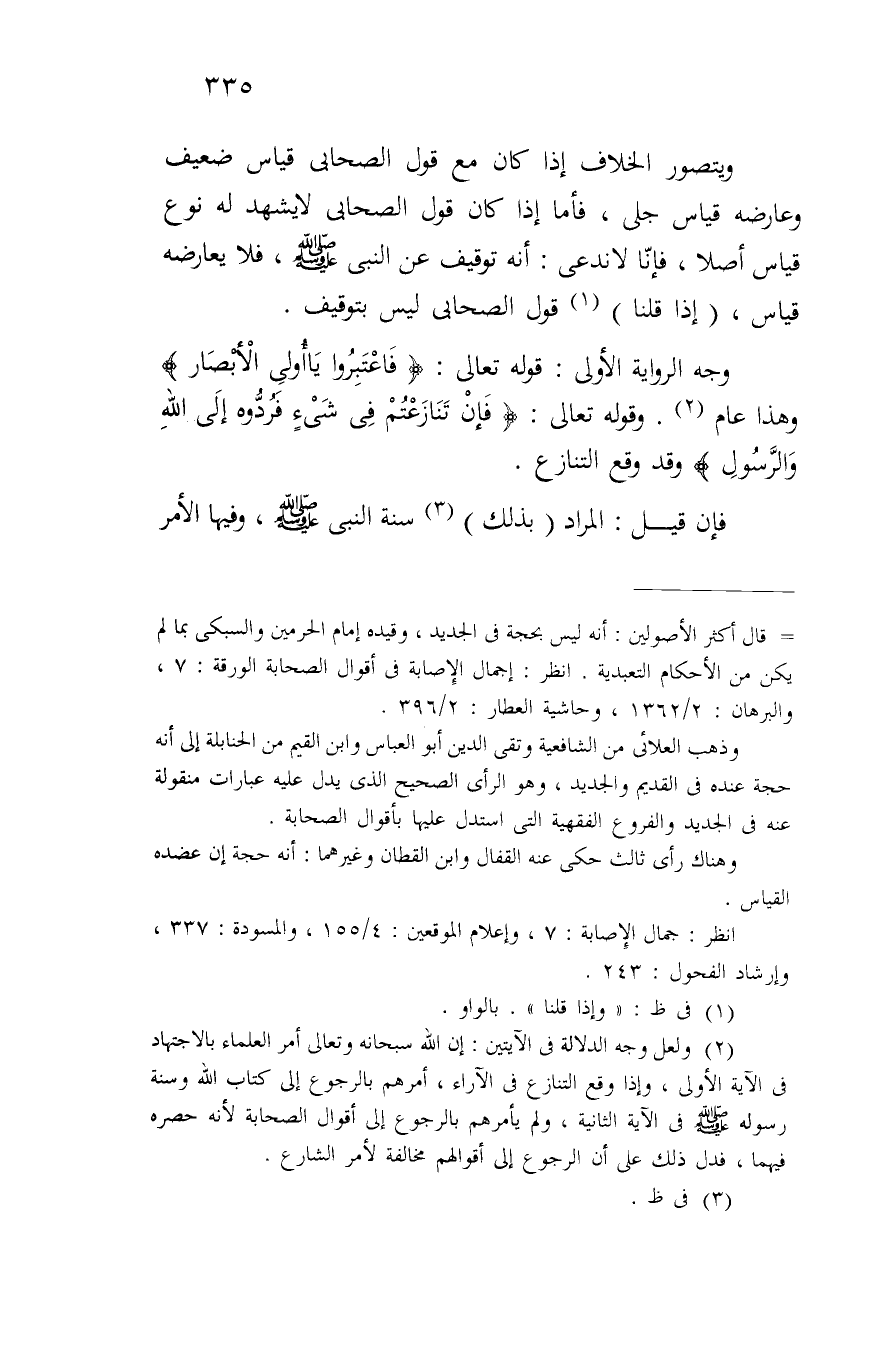 ٣٣٥
ويتصور الخلاف إذا كان مع قول الصحابى قياس ضعيف
وعارضه قياس جلى ، فأما إذا كان قول الصحابى لايشهد له نوع
قياس أصلا ، فإنّا لاندعى : أنه توقيف عن النبى ﷺ ، فلا يعارضه
قياس ، ( إذا قلنا ) (١) قول الصحابى ليس بتوقيف .
وجه الرواية الأولى : قوله تعالى : ﴿ فَاعْتَبِرُوا يَاأُولِى الْأَبْصَار ﴾
وهذا عام (٢) . وقوله تعالى : ﴿ فَإِنْ تَنَازَعْتُمْ فِى شَىْءٍ فَرُدُّوه إلَى اللهِ
وَالرَّسُولِ ﴾ وقد وقع التنازع .
فإن قيـــل : المراد ( بذلك ) (٣) سنة النبى ﷺ ، وفيها الأمر
= قال أكثر الأصولين : أنه ليس بحجة فى الجديد ، وقيده إمام الحرمين والسبكى بما لم
يكن من الأحكام التعبدية . انظر : إجمال الإصابة فى أقوال الصحابة الورقة : ٧ ،
والبرهان : ١٣٦٢/٢ ، وحاشية العطار : ٣٩٦/٢ .
وذهب العلائى من الشافعية وتقى الدين أبو العباس وابن القيم من الحنابلة إلى أنه
حجة عنده فى القديم والجديد ، وهو الرأى الصحيح الذى يدل عليه عبارات منقولة
عنه فى الجديد والفروع الفقهية التى استدل عليها بأقوال الصحابة .
وهناك رأى ثالث حكى عنه القفال وابن القطان وغيرهما : أنه حجة إن عضده
القياس .
انظر : جمال الإصابة : ٧ ، وإعلام الموقعين : ١٥٥/٤ ، والمسودة : ٣٣٧ ،
وإرشاد الفحول : ٢٤٣ .
(١) فى ظ : « وإذا قلنا » . بالواو .
(٢) ولعل وجه الدلالة فى الآيتين : إن الله سبحانه وتعالى أمر العلماء بالاجتهاد
فى الآية الأولى ، وإذا وقع التنازع فى الآراء ، أمرهم بالرجوع إلى كتاب الله وسنة
رسوله ﷺ فى الآية الثانية ، ولم يأمرهم بالرجوع إلى أقوال الصحابة لأنه حصره
فيهما ، فدل ذلك على أن الرجوع إلى أقوالهم مخالفة لأمر الشارع .
(٣) فى ظ .